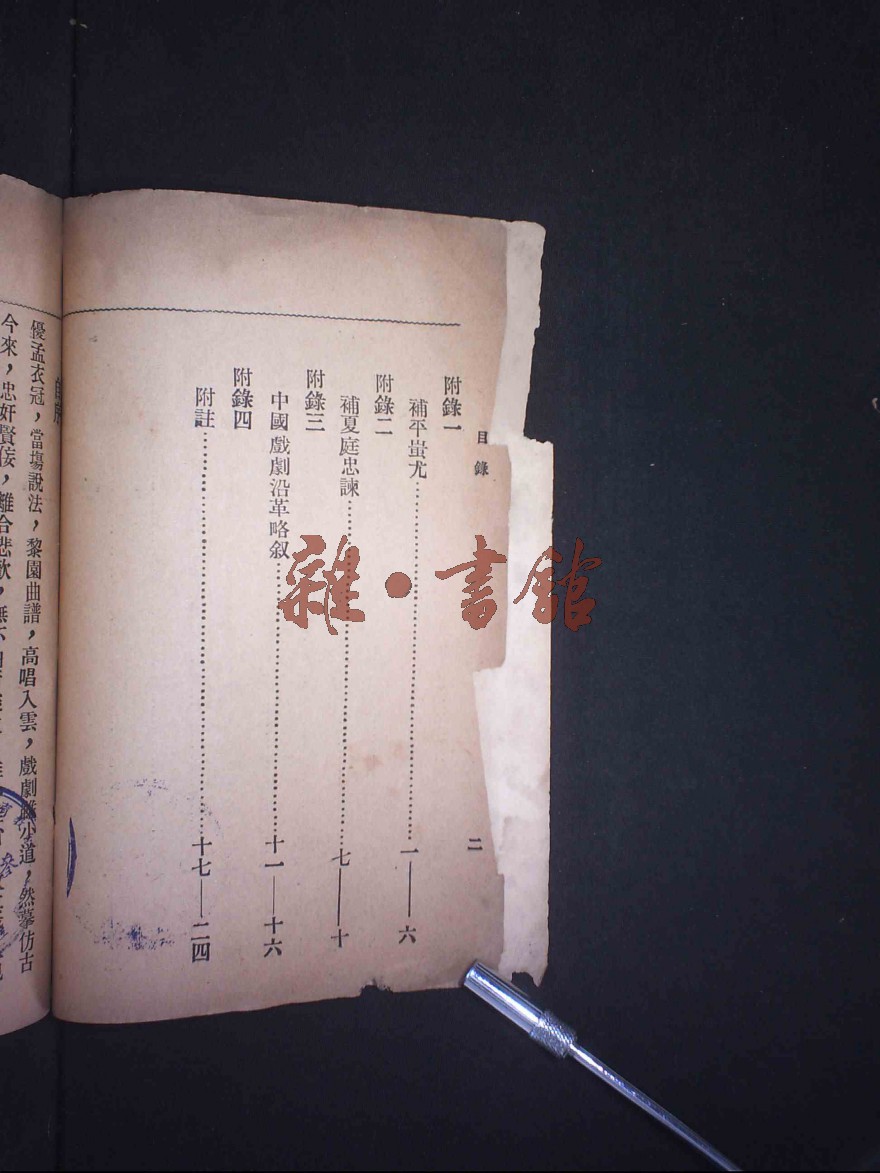 目錄
二
附錄一
補平蚩尤……一——六
附錄二
補夏庭忠諫……七——十
附錄三
中國戲劇沿革略叙……十一——十六
附錄四
附註……十七——二四
序
優孟衣冠，當塲說法，黎園曲譜，高唱入雲，戲劇雖小道，然摹仿古
今來，忠奸賢佞，離合悲歡，無不
雜·書館